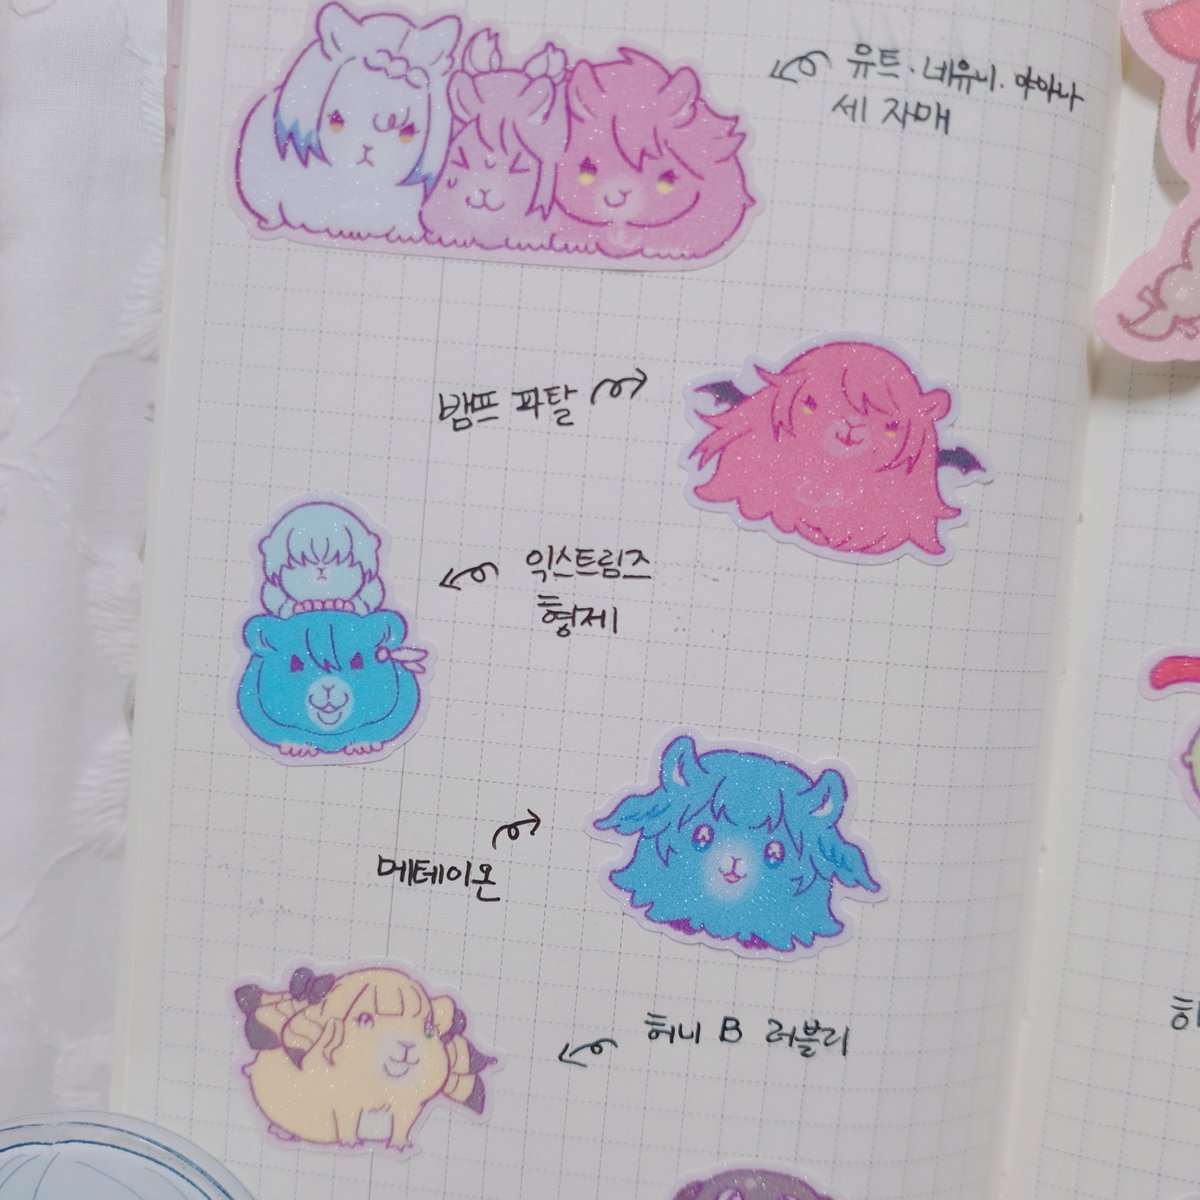 유트·네유니·야아나
세 자매
뱀프 파탈
익스트림즈
형제
메테이온
허니 B 러블리